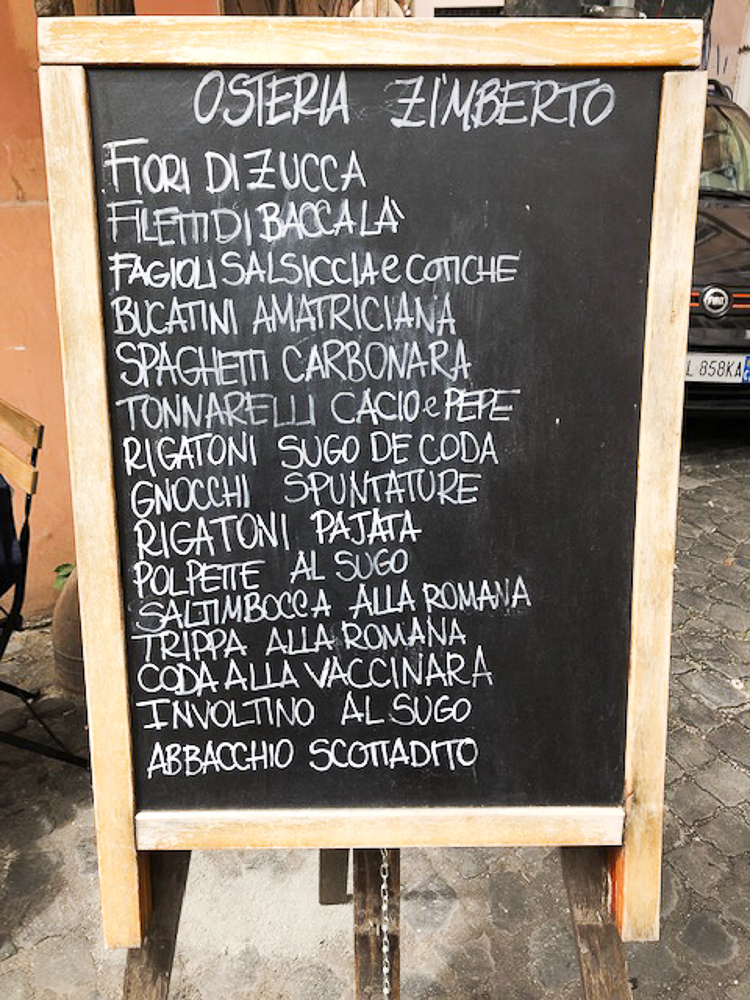 OSTERIA ZI'MBERTO
FIORI DI ZUCCA
FILETTI DI BACCALÀ
FAGIOLI SALSICCIA e COTICHE
BUCATINI AMATRICIANA
SPAGHETTI CARBONARA
TONNARELLI CACIO e PEPE
RIGATONI SUGO DE CODA
GNOCCHI SPUNTATURE
RIGATONI PAJATA
POLPETTE AL SUGO
SALTIMBOCCA ALLA ROMANA
TRIPPA ALLA ROMANA
CODA ALLA VACCINARA
INVOLTINO AL SUGO
ABBACCHIO SCOTTADITO
FIAT
L 858KA